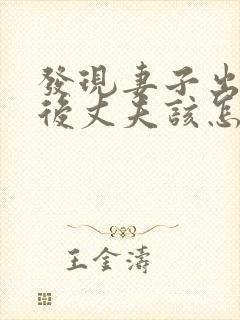 發現妻子出
後丈夫該怎
王金濤